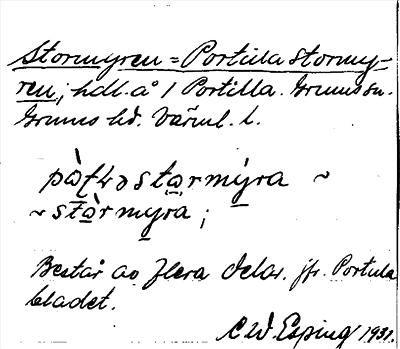 Stormyren = Portula stormy-
ren; hdl. å 1 Portilla. Grums sn.
Grums hd. Värml. l.
stàrmýra ~
~ stàrmyra;
Består av flera delar. jfr. Portula
bladet.
C W. Esping 1931.